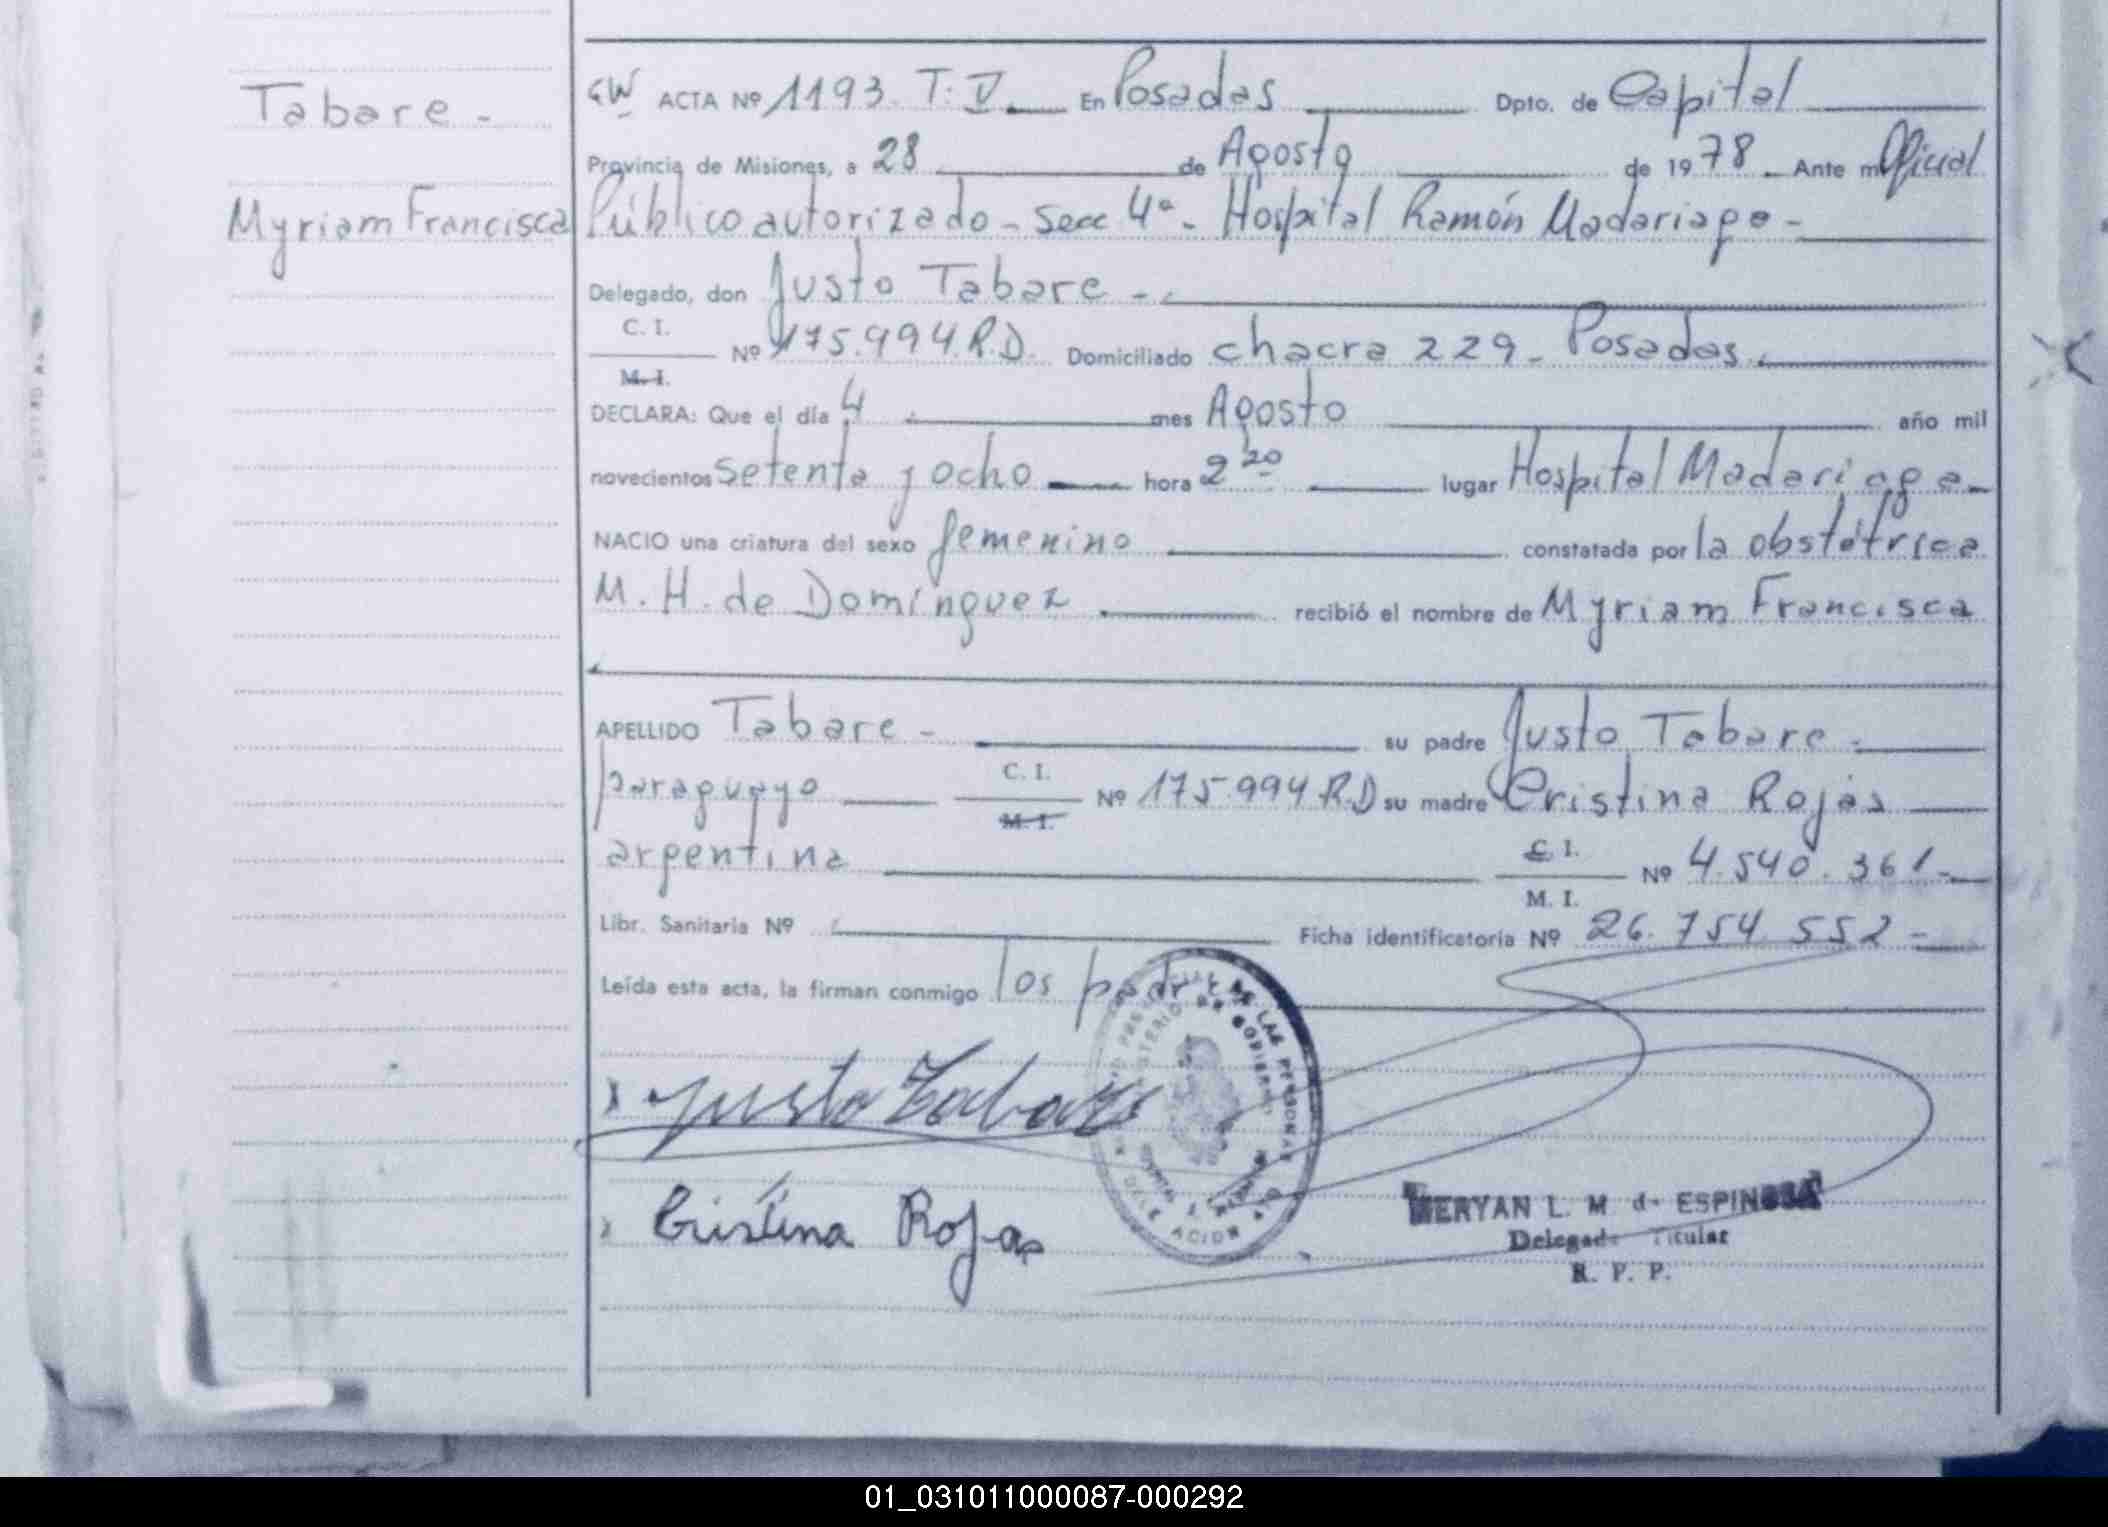 Tabare -
Myriam Francisca
GW ACTA Nº 1193. T. V. En Posadas Dpto. de Capital
Provincia de Misiones, a 28 de Agosto de 1978 Ante mí Oficial
Público autorizado - Secc 4ª - Hospital Ramón Madariaga -
Delegado, don Justo Tabare -
C. I.
Nº 175.994.R.D. Domiciliado chacra 229 - Posadas.
M. I.
DECLARA: Que el día 4 mes Agosto año mil
novecientos setenta y ocho hora 2 20 lugar Hospital Madariaga -
NACIO una criatura del sexo femenino constatada por la obstétrica
M. H. de Domínguez recibió el nombre de Myriam Francisca
APELLIDO Tabare - su padre Justo Tabare -
paraguayo C. I. Nº 175.994 R.D su madre Cristina Rojas
M. I.
argentina C. I. Nº 4.540.361 -
M. I.
Libr. Sanitaria Nº Ficha identificatoria Nº 26.754.552 -
Leída esta acta, la firman conmigo los padres
DE LAS PERSONAS
MINISTERIO DE GOBIERNO
DELEGACION
x Justo Tabare
x Cristina Rojas
MERYAN L. M. de ESPINOSA
Delegada Titular
R. P. P.
01_031011000087-000292